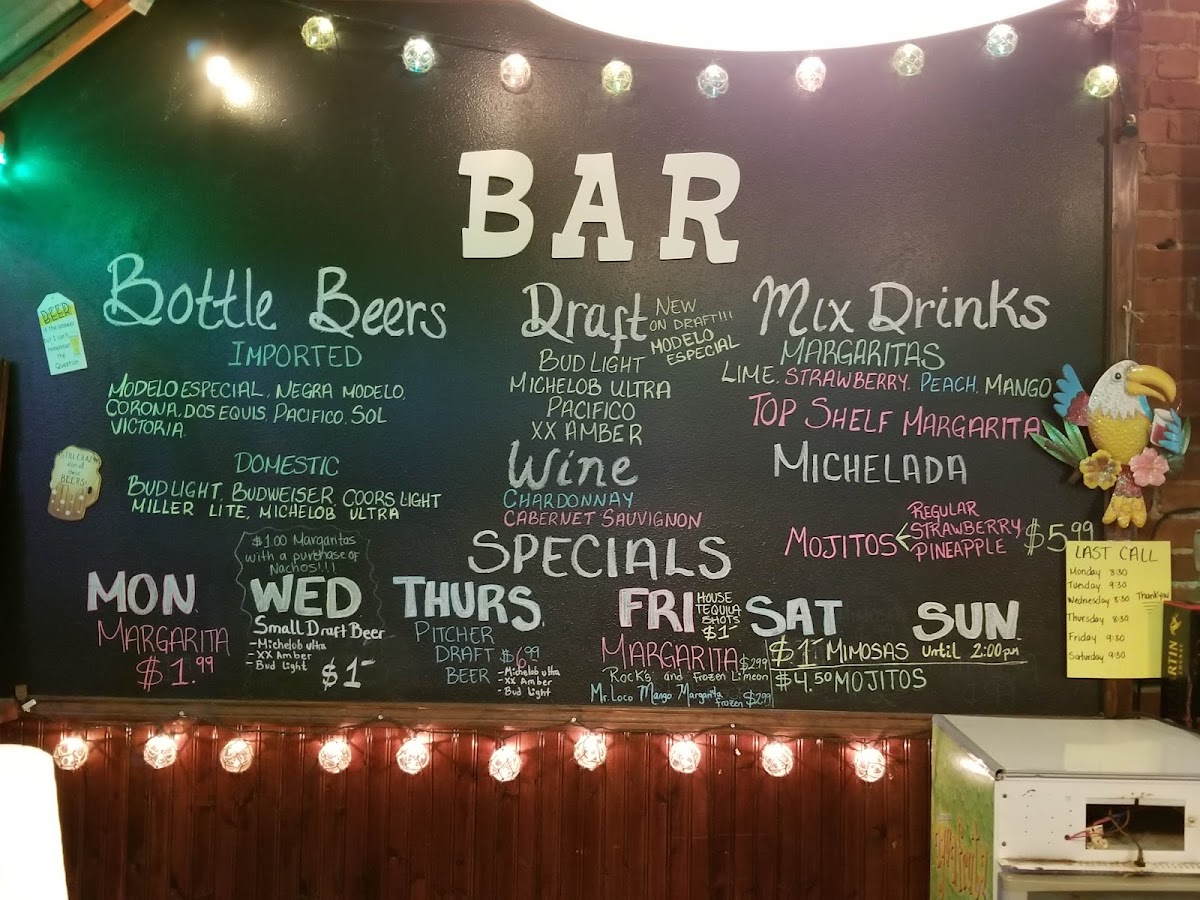 BAR
Bottle Beers
IMPORTED
MODELO ESPECIAL, NEGRA MODELO,
CORONA, DOS EQUIS, PACIFICO, SOL
VICTORIA.
DOMESTIC
BUD LIGHT, BUDWEISER COORS LIGHT
MILLER LITE, MICHELOB ULTRA
Draft
NEW
ON DRAFT!!!
MODELO
ESPECIAL
BUD LIGHT
MICHELOB ULTRA
PACIFICO
XX AMBER
Wine
CHARDONNAY
CABERNET SAUVIGNON
Mix Drinks
MARGARITAS
LIME, STRAWBERRY, PEACH, MANGO
TOP SHELF MARGARITA
MICHELADA
MOJITOS
REGULAR
STRAWBERRY
PINEAPPLE
$5.99
SPECIALS
MON.
MARGARITA
$1.99
$1.00 Margaritas
with a purchase of
Nachos!!!
WED
Small Draft Beer
- Michelob ultra
- XX Amber
- Bud Light
$1-
THURS.
PITCHER
DRAFT
BEER
$6.99
- Michelob ultra
- XX Amber
- Bud Light
FRI
HOUSE
TEQUILA
SHOTS
$1-
MARGARITA $2.99
Rocks and Frozen Limeon
Mr. Loco Mango Margarita
frozen $2.99
SAT
SUN.
$1- MIMOSAS until 2:00pm
$4.50 MOJITOS
BEER
is the answer
but I can't
remember
the
Question
BEERS!
LAST CALL
Monday 8:30
Tuesday 9:30
Wednesday 8:30 Thank you
Thursday 8:30
Friday 9:30
Saturday 9:30